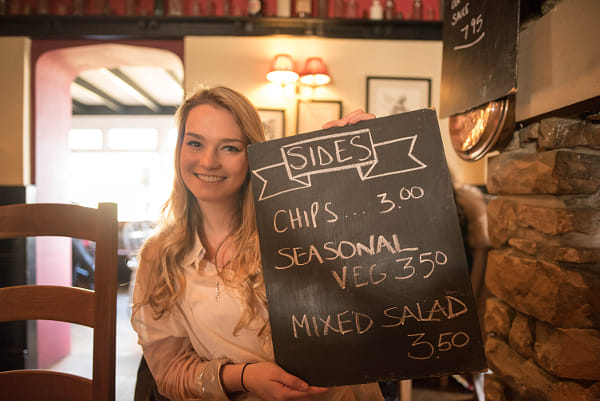 SAKE)
7.95
SIDES
CHIPS... 3.00
SEASONAL
VEG 3.50
MIXED SALAD
3.50